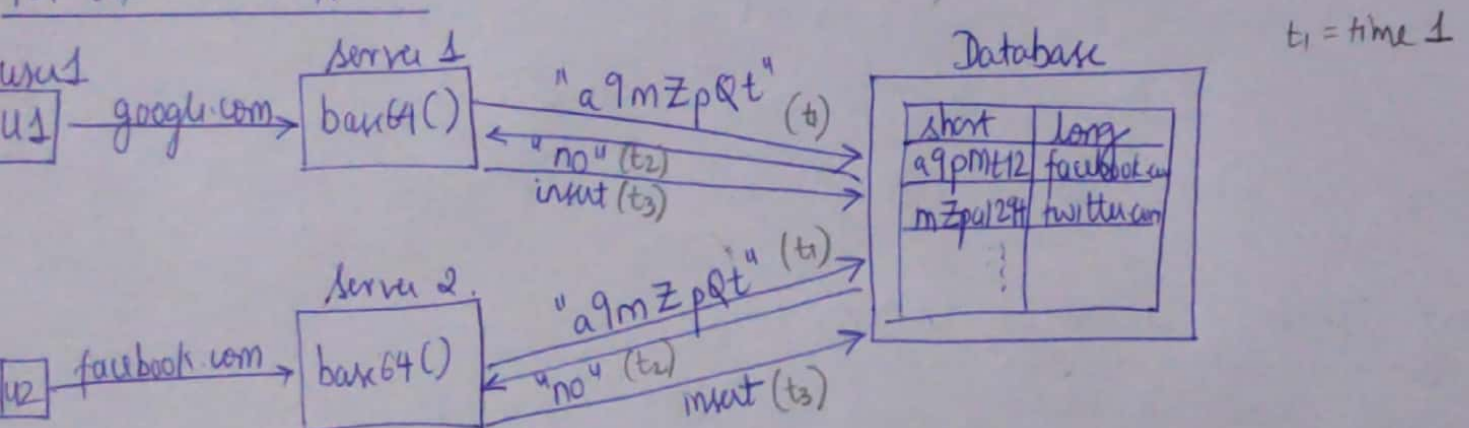 t₁ = time 1
user1
U1
google.com
server 1
base64()
"a9mZpQt" (t₁)
"no" (t₂)
insert (t₃)
Database
short long
a9pMt12 facebook.com
mZpa129t twitter.com
server 2.
U2
facebook.com
base64()
"a9mZpQt" (t₁)
"no" (t₂)
insert (t₃)